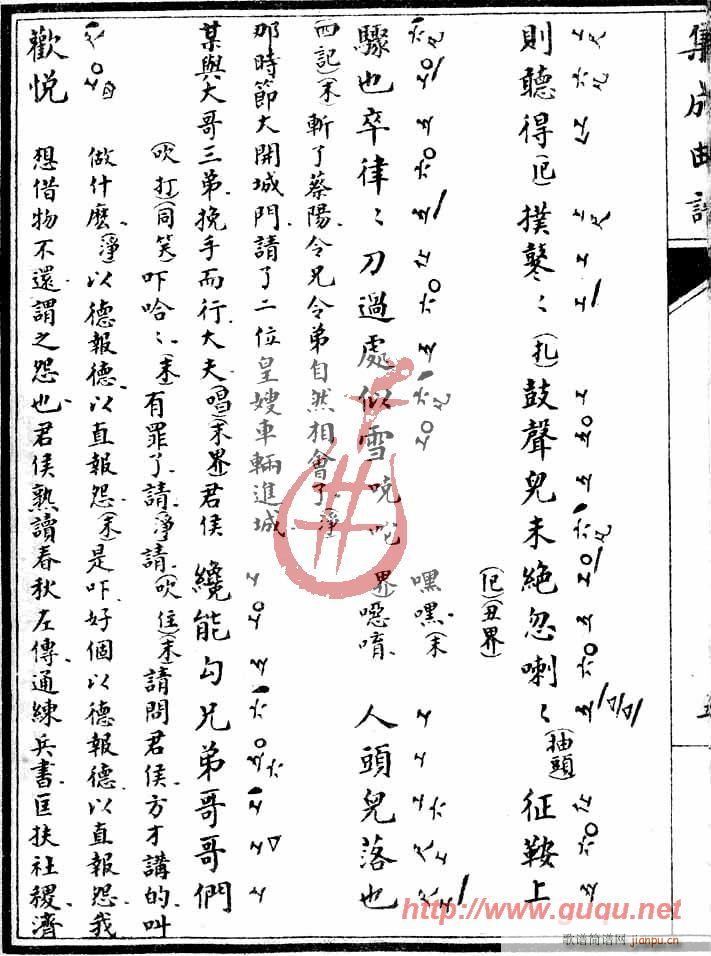 集成曲譜
則聽得(㔾)撲鼕〻(扎)鼓聲兒未絕忽喇〻(抽頭)征鞍上
(㔾)(丑界)
驟也卒律〻刀過處似雪 人頭兒落也
嘿嘿(末)
界)噁唷
四記)(末)斬了蔡陽令兄令弟自然相會了(淨)
那時節大開城門請了二位皇嫂車輛進城
某與大哥三弟挽手而行大夫(唱)(末界)君侯 纔能勾兄弟哥哥們
(吹打)(同笑)吓哈〻(末)有罪了請(淨)請(吹住)(末)請問君侯方才講的叫
歡悅 做什麽(淨)以德報德以直報怨(末)是吓好個以德報德以直報怨我
想借物不還謂之怨也君侯熟讀春秋左傳通練兵書匡扶社稷濟
http://www.guqu.net
歌谱简谱网 jianpu.cn